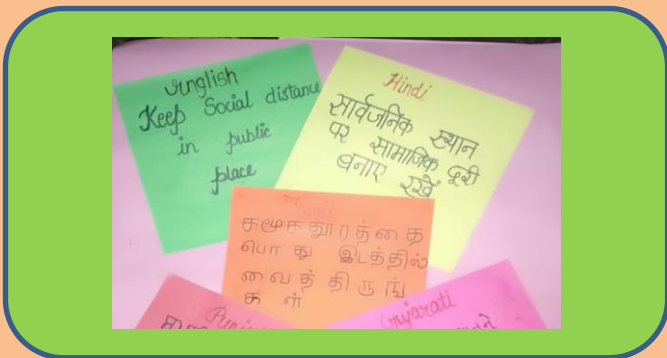 English
Keep Social distance
in public
place
Hindi
सार्वजनिक स्थान
पर सामाजिक दूरी
बनाए रखें
சமூகதூரத்தை
பொது இடத்தில்
வைத்திருங்
கள்
Gujarati